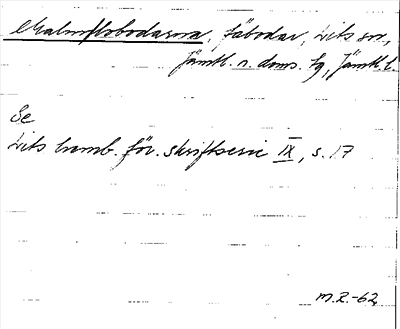 Malmflobodarna, fäbodar, Lits sn,
Jämtl. n. doms. tg, Jämtl. l.
Se
Lits hemb. för. skriftserie IX, s. 17
M.R.-62